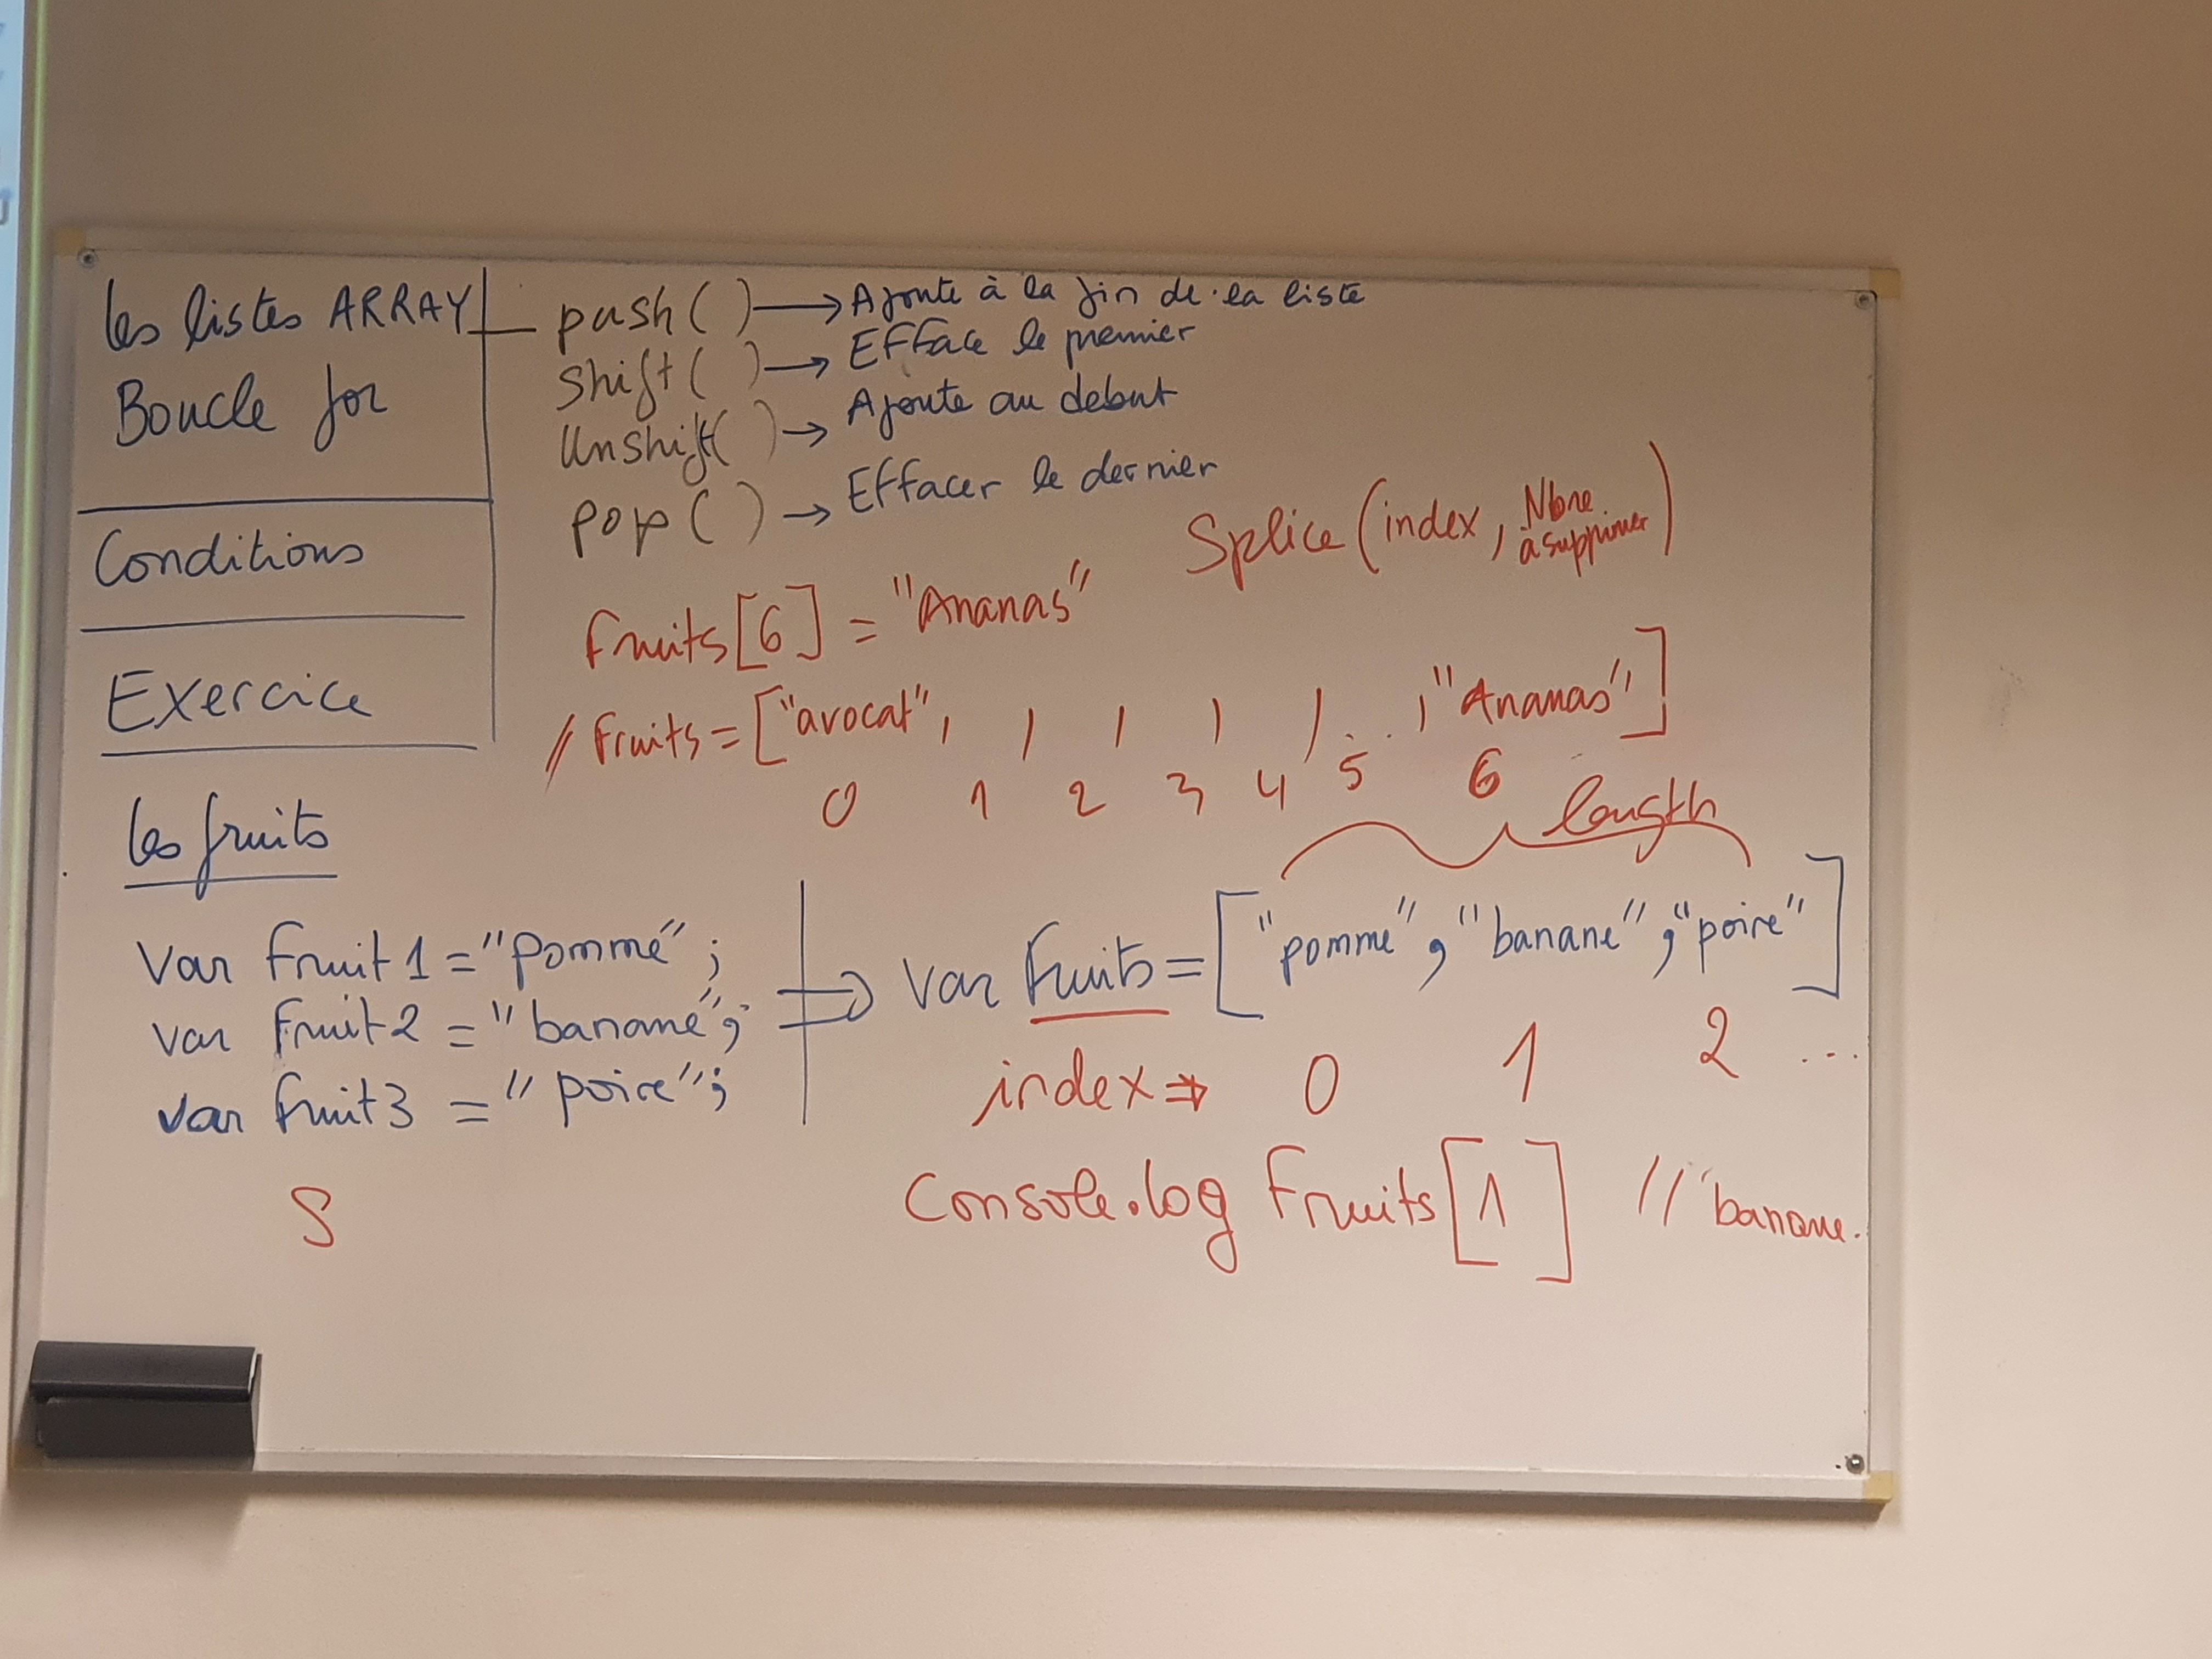 les listes ARRAY
Boucle for
Conditions
Exercice
push ( ) → Ajoute à la fin de la liste
shift ( ) → Efface le premier
Unshift( ) → Ajoute au debut
pop ( ) → Effacer le dernier
Splice (index, Nbre a supprimer)
Fruits[6] = "Ananas"
// Fruits = ["avocat", , , , , . . , "Ananas"]
0 1 2 3 4 5 6
length
les fruits
Var Fruit1 = "Pomme" ;
var Fruit2 = "banane";
var fruit3 = "poire";
S
⇒ var Fruits = ["pomme", "banane", "poire"]
index ⇒ 0 1 2 ...
Console.log Fruits[1] // "banane.